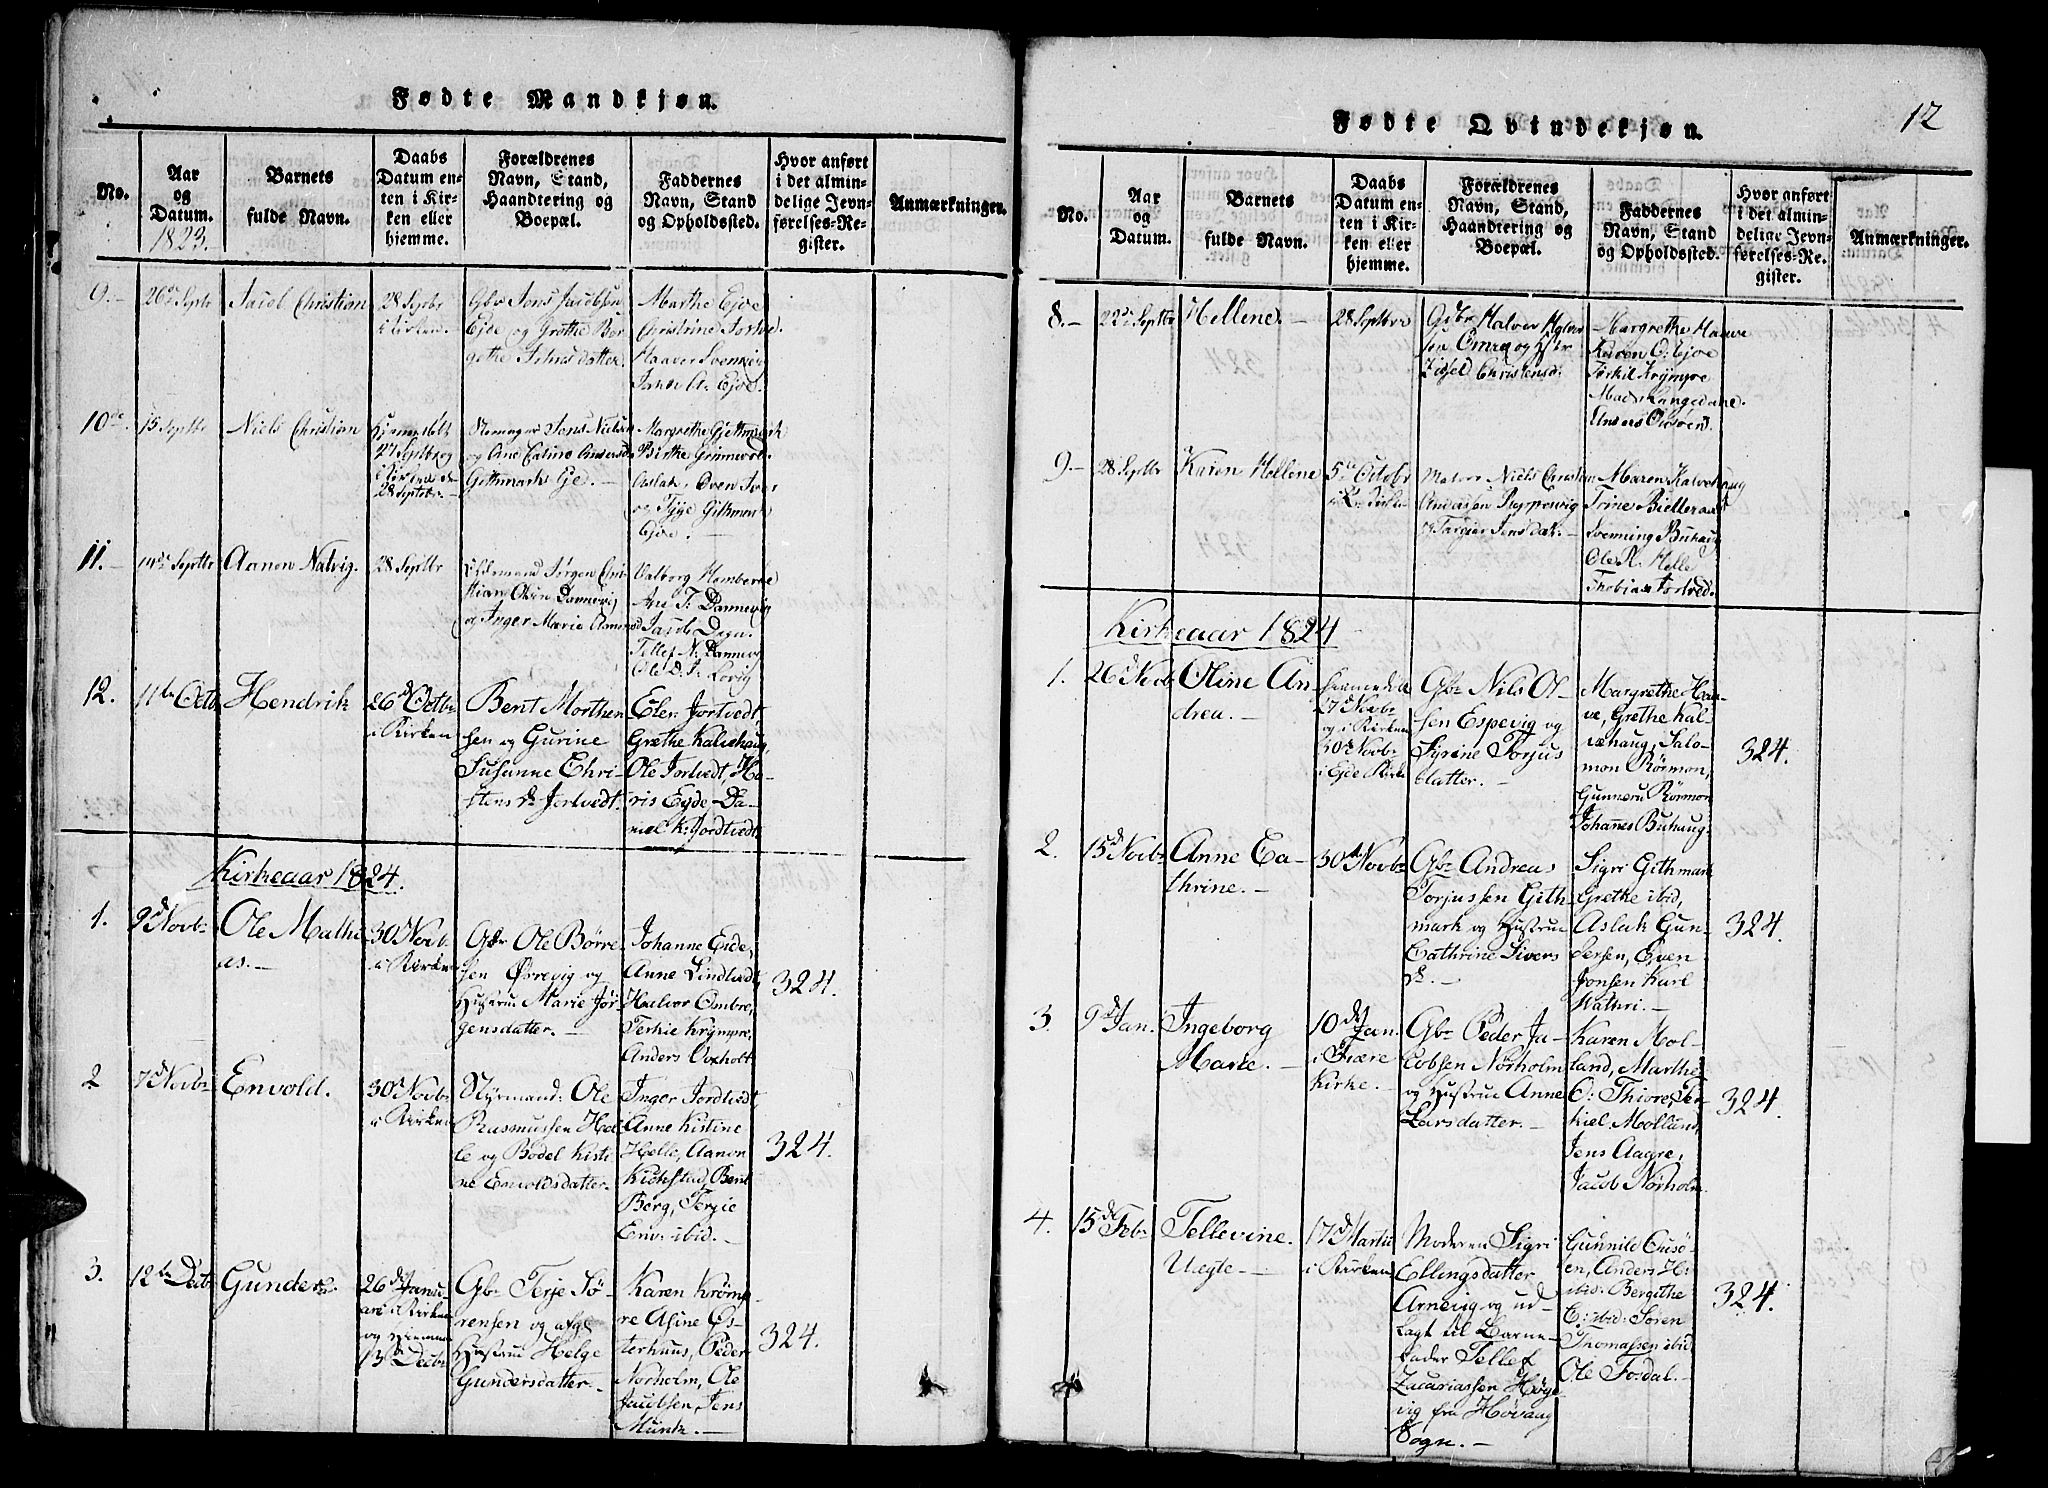 Fødte Mandkjøn.
No.
Aar
og
Datum.
1823.
Barnets
fulde Navn.
Daabs
Datum en-
ten i Kir-
ken eller
hjemme.
Forældrenes
Navn, Stand,
Haandtering og
Boepæl.
Faddernes
Navn, Stand
og Opholdssted.
Hvor anført
i det almin-
delige Jevn-
førelses-Re-
gister.
Anmærkninger.
9.-
26de Septbr
Jacob Christian
28 Septbr
i Kirken.-
Gbr Jens Jacobsen
Eide og Grethe Bor-
gethe Jensdatter.
Marthe Ejde
Christine
10de
15 Septbr
Niels Christian
Hjemmedøbt
27 Septbr og
i Kirken den
28 Septbr.-
Jens Nielsen
og Ane Catrine Andersd.
Margrethe Gjettmark
Birthe
11.-
14de Septbr
Aanon Natvig.
28 Septbr
Jørgen Chri-
stian Olsen Dannevig
og Inger Marie
Valborg
Ane T: Dannevig
Jacob
Tellef N: Dannevig
12.
11te Octb
Hendrik
26d Octbr
i Kirken
Bent Morthen
sen og Gurine
Susanne Chri-
stensdr Jortvedt.
Elen Jortvedt,
Grethe Kalvehaug,
Ole Jortvedt, Ha-
ris Eyde Da-
niel K: Jordtvedt
Kirkeaar 1824.
1.
9d Novbr
Ole Mathi
as.-
30 Novb
i Kirken
Gbr Ole Børre-
sen Østevig og
Hustrue Marie Jør
gensdatter.-
Johanne Eide,
Anne Lindtvedt
Halvor Ombre,
Terkie Krympre,
Anders Oxholt
324.
2
7d Novbr
Envold.
30d Novbr
i Kirken
Styrmand: Ole
Rasmussen Hel
le og Bodel Kisti
ne Envoldsdatter-
Inger Jordtvedt
Anne Kistine
Helle, Aanon
Kichstad, Bent
Berg, Terjie
Env: ibid.-
324.
3.
12te Decbr
Gunder
26de Janu
ari i Kirken
og hiemme
13de Decbr
Gbr Terje Sø-
rensen og afgl
Hustrue Helge
Gundersdatter.-
Karen Krømp-
re Asine Es-
terhuus, Peder
Nørholm, Ole
Jacobsen, Jens
Munk.-
324.
12
Fødte Qvindekjøn.
No.
Aar
og
Datum.
Barnets
fulde Navn.
Daabs
Datum en-
ten i Kir-
ken eller
hjemme.
Forældrenes
Navn, Stand,
Haandtering og
Boepæl.
Faddernes
Navn, Stand
og Opholdssted.
Hvor anført
i det almin-
delige Jevn-
førelses-Re-
gister.
Anmærkninger.
8.-
22de Septbr
Hellene.-
28 Septbr
Gdbr Halvor Halvor
sen Omre og Hstr
Zidsel Christensd:
Margrethe Hauve
Karen O: Ejde
Terkil Krympre
Mads Langedahl.
Anders
9.-
28 Septbr
Karen Hellene
5te Octobr
i Kirken
Matros Niels Christian
Andersen
og Targier Jensdatt.-
Maren Kalvehaug
Trine
Svenning Buhaug
Ole R. Helle
Thobias Jortved.
Kirkeaar 1824
1.
26d Novb
Oline An
drea.-
hiemmedøbt
27d Novbr
og i Kirken
30d Novbr
i Eyde Kirke
Gbr Nils Ol-
sen Espevig og
Syrine Torjus
datter.-
Margrethe Hau-
ve, Grethe Kal-
vehaug, Salo-
mon Rørmon,
Gunneru Rørmon
Johannes Buhaug.
324.
2.
15d Novbr
Anne Ca-
thrine.-
30te Novbr
Gbr Andreas
Torjussen Gith-
mark og Hustrue
Cathrine Sivers
dr.-
Sigri Githmark
Grethe ibid,
Aslak Gun-
dersen, Even
Jonsen Karl
Wathri.-
324.
3.
9d Jan.
Ingeborg
Marie.-
10de Jan.
i Fiære
Kirke.-
Gbr Peder Ja-
cobsen Nørholm
og Hustrue Anne
Larsdatter.-
Karen Mol-
land, Marthe
O: Thiore, Ter-
kiel Molland,
Jens Aagre,
Jacob Nørholm
324.
4.
15de Febr
Tellevine.
Uægte-
17d Martii
i Kirken
Moderen Sigri
Ellingsdatter
Arnevig og ud-
lagt til Barne-
fader Tellef
Zacariassen Høge
vig fra Høvaag
Sogn.-
Gunnild Ousø-
en, Anders H:
ibid: Bergithe
E: ibid: Søren
Thomassen ibid
Ole Fosdal.-
324.